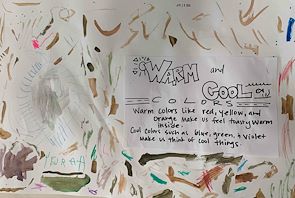 WARM
and
COOL
COLORS
Warm colors like red, yellow, and
orange make us feel toasty warm
inside.
Cool colors such as blue, green, & violet
make us think of cool things.